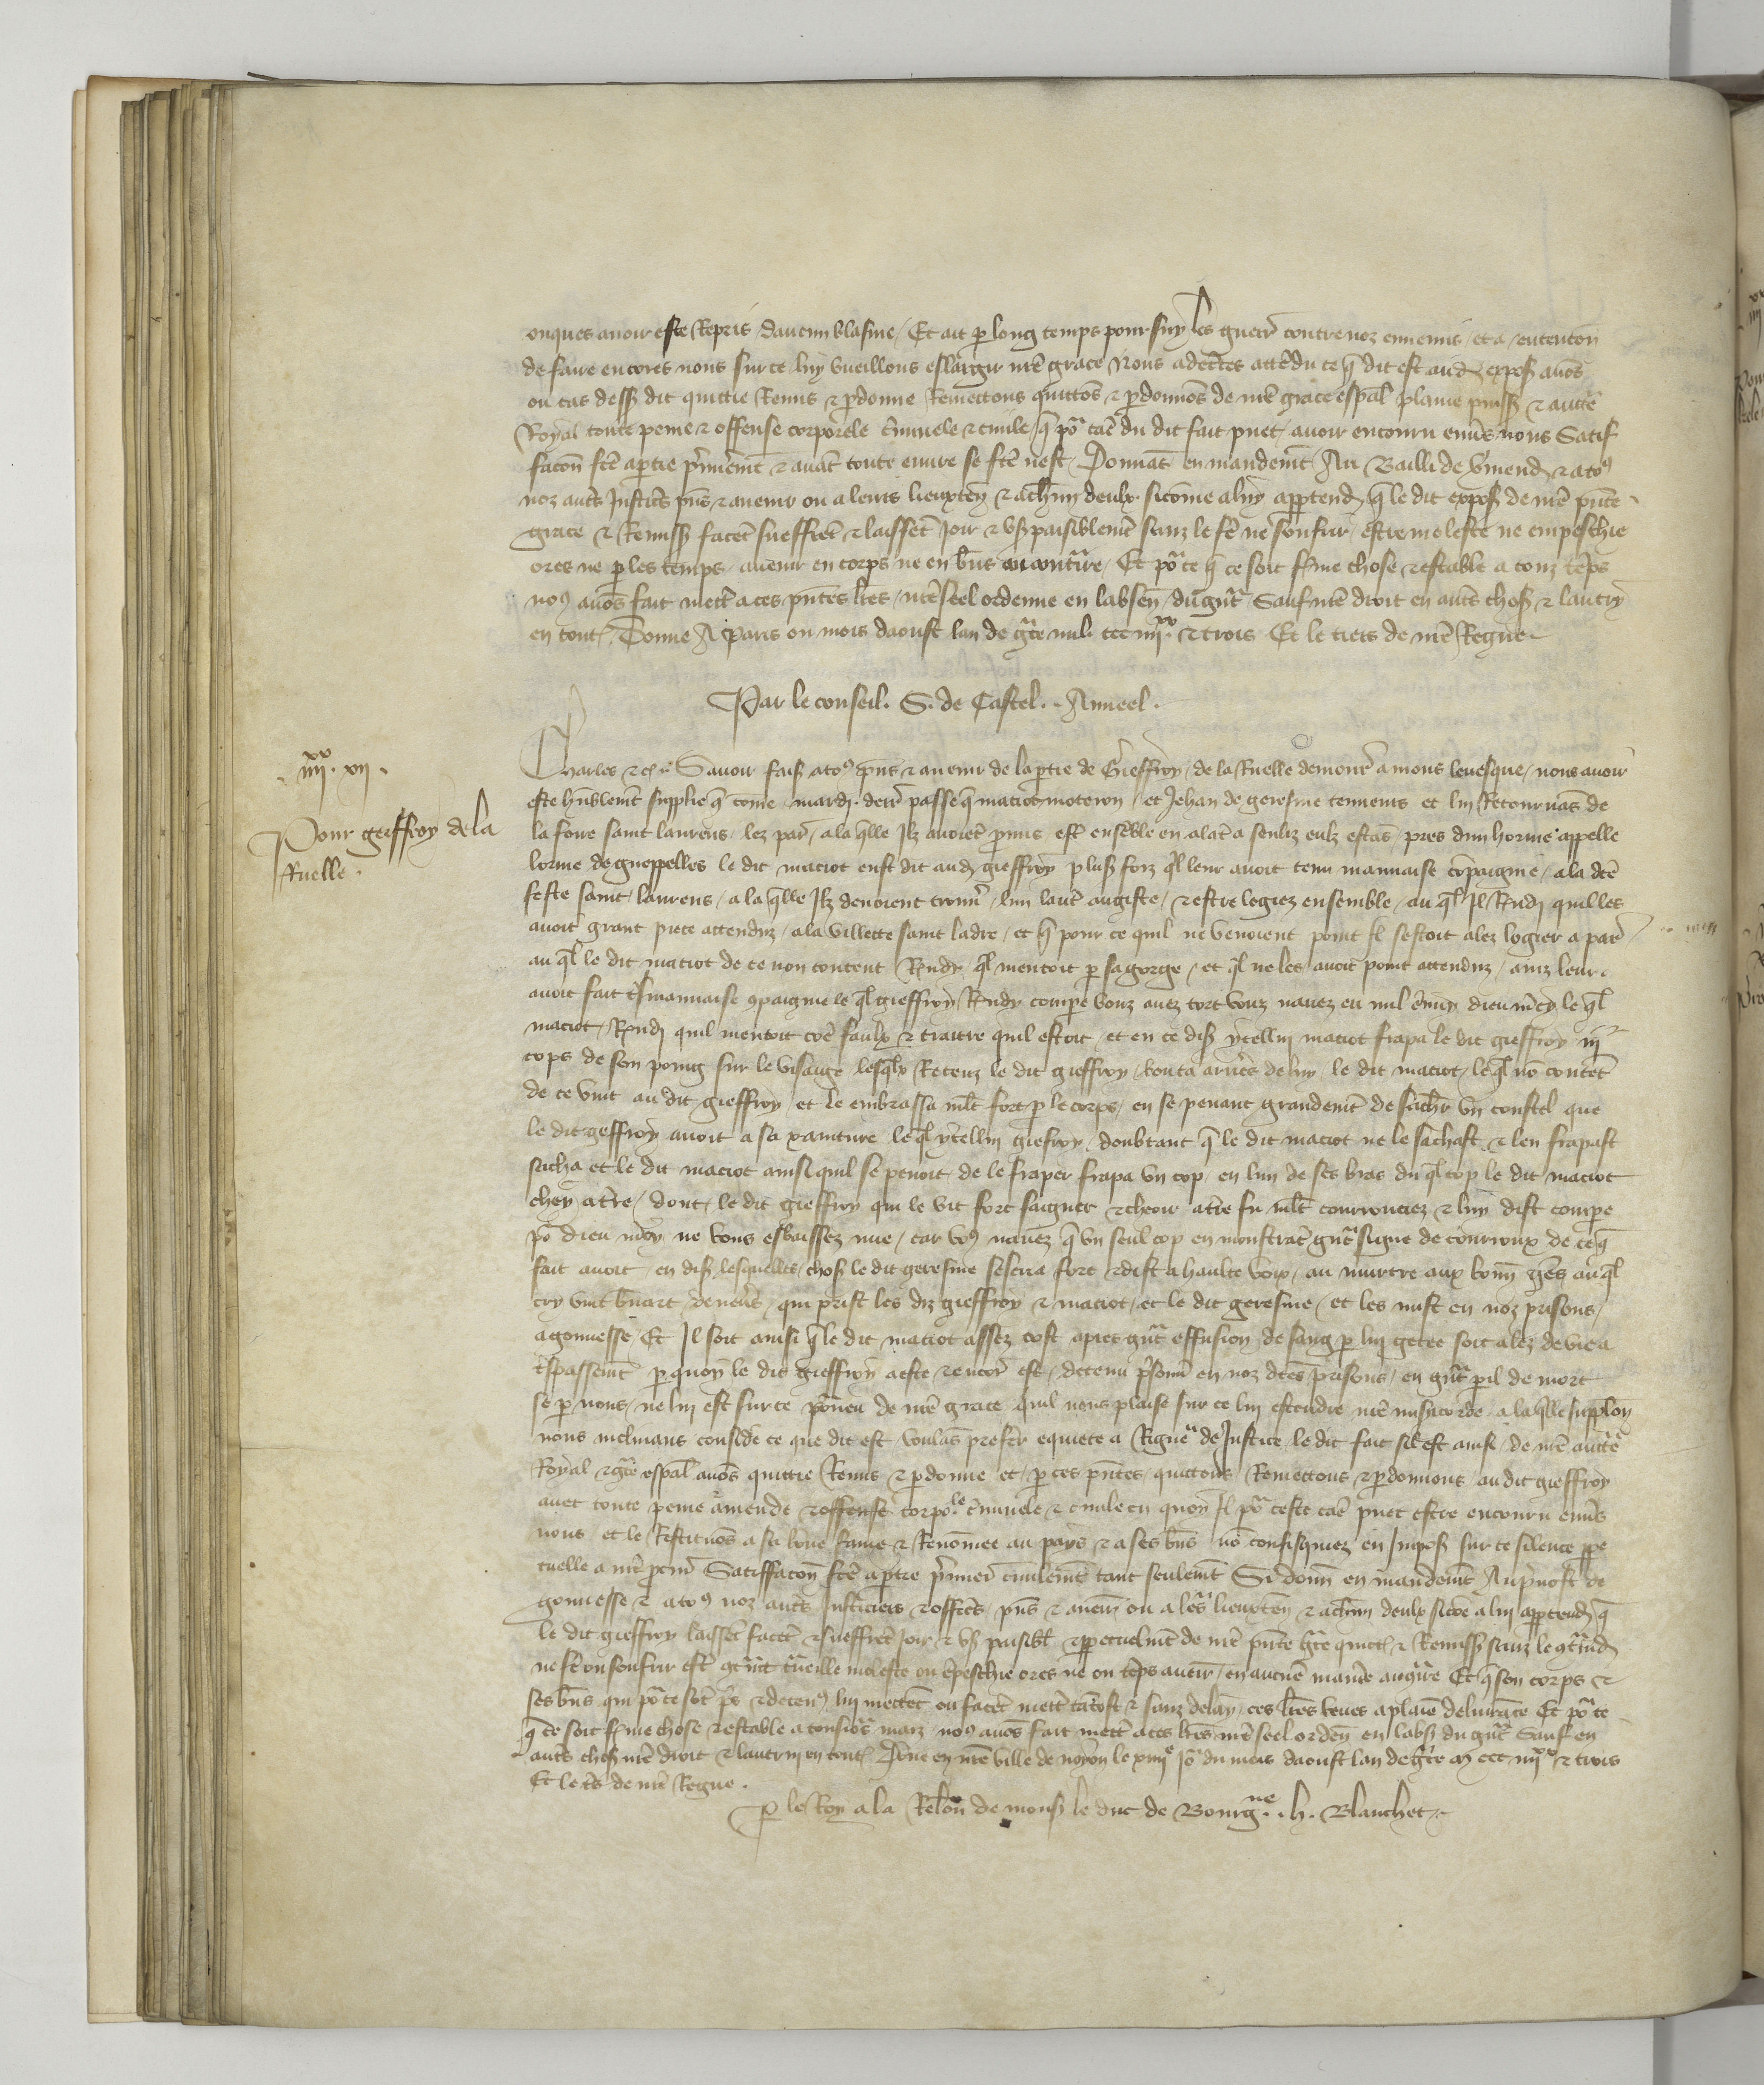 onques avoir este Repris daucun blasme / Et ait p long temps poursuy les guerr contre noz ennemis / et a entencon
de faire encores nous sur ce luy vueillons eslargir nre grace Nous adcertes attendu ce q dit est aud expos avos
ou cas dess dit quittie Remis & pdonne Remettons quittos & pdonnos de nre grace espal plaine puiss & aucte
Royal toute peine & offense corporele criminele & civile q po cae du dit fait puet avoir encouru envs nous Satif
facon fce a ptie p̃mierement & avat toute euvre se fce nest Donnat en mandemt Au Bailli de Vmend & a to9
noz autˢ Justicˢ pñs & avenir ou a leurs lieuxten & a chun deulx sicomme a luy apptend q le dit expos de nre pñte
grace & Remiss facet sueffret & laisset Joir & us paisiblemt sanz le fe ne soufrir estre moleste ne empeschie
ores ne p les temps avenir en corps ne en biens au contire Et po ce q ce soit ferme chose & estable a touz teps
no9 avos fait mett a ces pñtes lres nre seel ordenne en labsen du grt Sauf nre droit en autˢ chos & lautruy
en tout Donne A Paris ou mois daoust lan de gce mil ccc iiij xx & trois Et le tiers de nre Regne
Par le conseil. S. de Castel. Anneel.
iiij xx xij
Pour gieffroy de la
Ruelle.
Charles &c Savoir faiss a to9 pñs & avenir de la ptie de Gieffroy de la Ruelle demour a mons levesque nous avoir
este humblemt supplie q come mardi derr passe q maciot motoron et Jehan de geresme tennents et luy Retournas de
la foire saint laurens lez par a la qlle Ilz avoiet pmis estre ensemble en alat a senliz eulz estas pres dun horme appelle
lorme de gueppelles le dit maciot eust dit aud gieffroy plus foiz ql leur avoit tenu mauvaise copaignie a la dce
feste saint laurens a la qlle Ilz devoient trouver lun lautˢ au giste & estre logiez ensemble au ql Il Rndi quil les
avoit grant piece attenduz a la villette saint ladre et q pour ce quil ne venoient point Il sestoit alez logier a par
au ql le dit maciot de ce non content Rndy ql mentoit p sa gorge et ql ne les avoit point attenduz ainz leur
avoit fait tˢ mauvaise 9paignie le ql gieffroy Rndy compe vous avez tort vous navez eu nul ennuy dieu mcy le ql
maciot Rndi quil mentoit coe faulx & traitre quil estoit et en ce dis ycelluy maciot frapa le dit gieffroy iij
cops de son poing sur le visaige lesqlx Receuz le dit gieffroy bouta arrˢ de luy le dit maciot le ql no contet
de ce vint au dit gieffroy et le embrassa mlt fort p le corps en se penant grandemt de sachr un coustel que
le dit geffroy avoit a sa xainture le ql ycelluy giefroy doubtant q le dit maciot ne le sachast & len frapast
sacha et le dit maciot ainsi quil se penoit de le fraper frapa un cop en lun de ses bras du ql cop le dit maciot
chey a tˢre dont le dit gieffroy qui le vit fort saigner & cheoir a tˢre fu mlt courrouciez & luy dist compe
po dieu mcy ne vous esbaissez mie car vo9 navez q un seul cop en monstrat grt signe de courroux de ce q
fait avoit en dis lesquelles chos le dit geresme sescria fort & dist a haulte voix au murtre aux bonn gens au ql
cry vint bnart de nevers qui prist les diz gieffroy & maciot et le dit geresme et les mist en noz prisons
a gonnesse Et Il soit ainsi q le dit maciot assez tost apres grt effusion de sang p luy getee soit alez de vie a
tˢpassemt p quoy le dit gieffroy a este & encor est detenu prisonn en noz dces prisons en grt pil de mort
se p nous ne luy est sur ce pourveu de nre grace quil nous plaise sur ce luy estendre nre misicorde a la qlle supplon
nous inclinans conside ce que dit est voulas preferer equite a Rigueur de Justice le dit fait sil est ainsi de nre aucte
Royal & gce espal avos quittie Remis & pdonne et p ces pñtes quittons Remettons & pdonnons au dit gieffroy
avec toute peine amende & offense corpole criminele & civile en quoy Il po ceste cae puet estre encouru envs
nous et le Restituos a sa bone fame & Renomee au pays & a ses bns no confisquiez en Impos sur ce silence ppe
tuelle a nre procur Satiffacon fce a ptie pmier civilemt tant seulemt Si donn en mandemt Au prevost de
gonnesse & a to9 noz autˢ Justiciers & officˢ pñs & avenir ou a leurs lieuxten & a chun deulx sicoe a luy apptend q
le dit gieffroy laisset facet & sueffret joir & us paisibl & ppetuelmt de nre pñte gce quitt & Remiss sanz le 9traind
ne fe ou soufrir estr gtraint traveille moleste ou epeschie ores ne ou teps avenir en aucune maniere au gtire Et q son corps &
ses bns qui po ce sont pˢ & detenu9 luy mettet ou facet mett tatost & sanz delay ces lres veues a plaine delivrance Et po ce
q ce soit ferme chose & estable a tousjours mais no9 avos fait mett a ces lres nre seel orden en labs du grt Sauf en
autˢ chos nre droit & lautruy en tout Done en nre ville de noyon le xiiij e jo du mois daoust lan de gce m ccc iiij xx & trois
Et le tˢs de nre Regne.
P le Roy a la Relon de mons le duc de Bourg ne. h. Blanchet